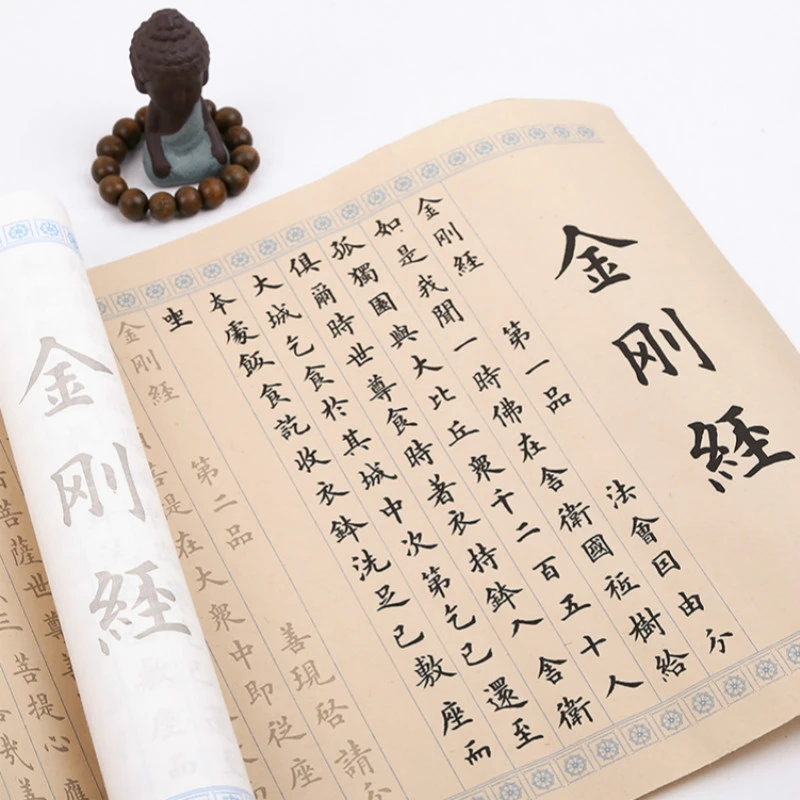 金刚經
金刚經 第一品 法會因由分
如是我聞一時佛在舍衛國祗樹給
孤獨園與大比丘衆千二百五十人
俱爾時世尊食時著衣持鉢入舍衛
大城乞食於其城中次第乞已還至
本處飯食訖收衣鉢洗足已敷座而
坐
金刚經 第二品 善現啓請分
菩提在大衆中即從座
菩薩世尊善
三菩提心應
金刚經